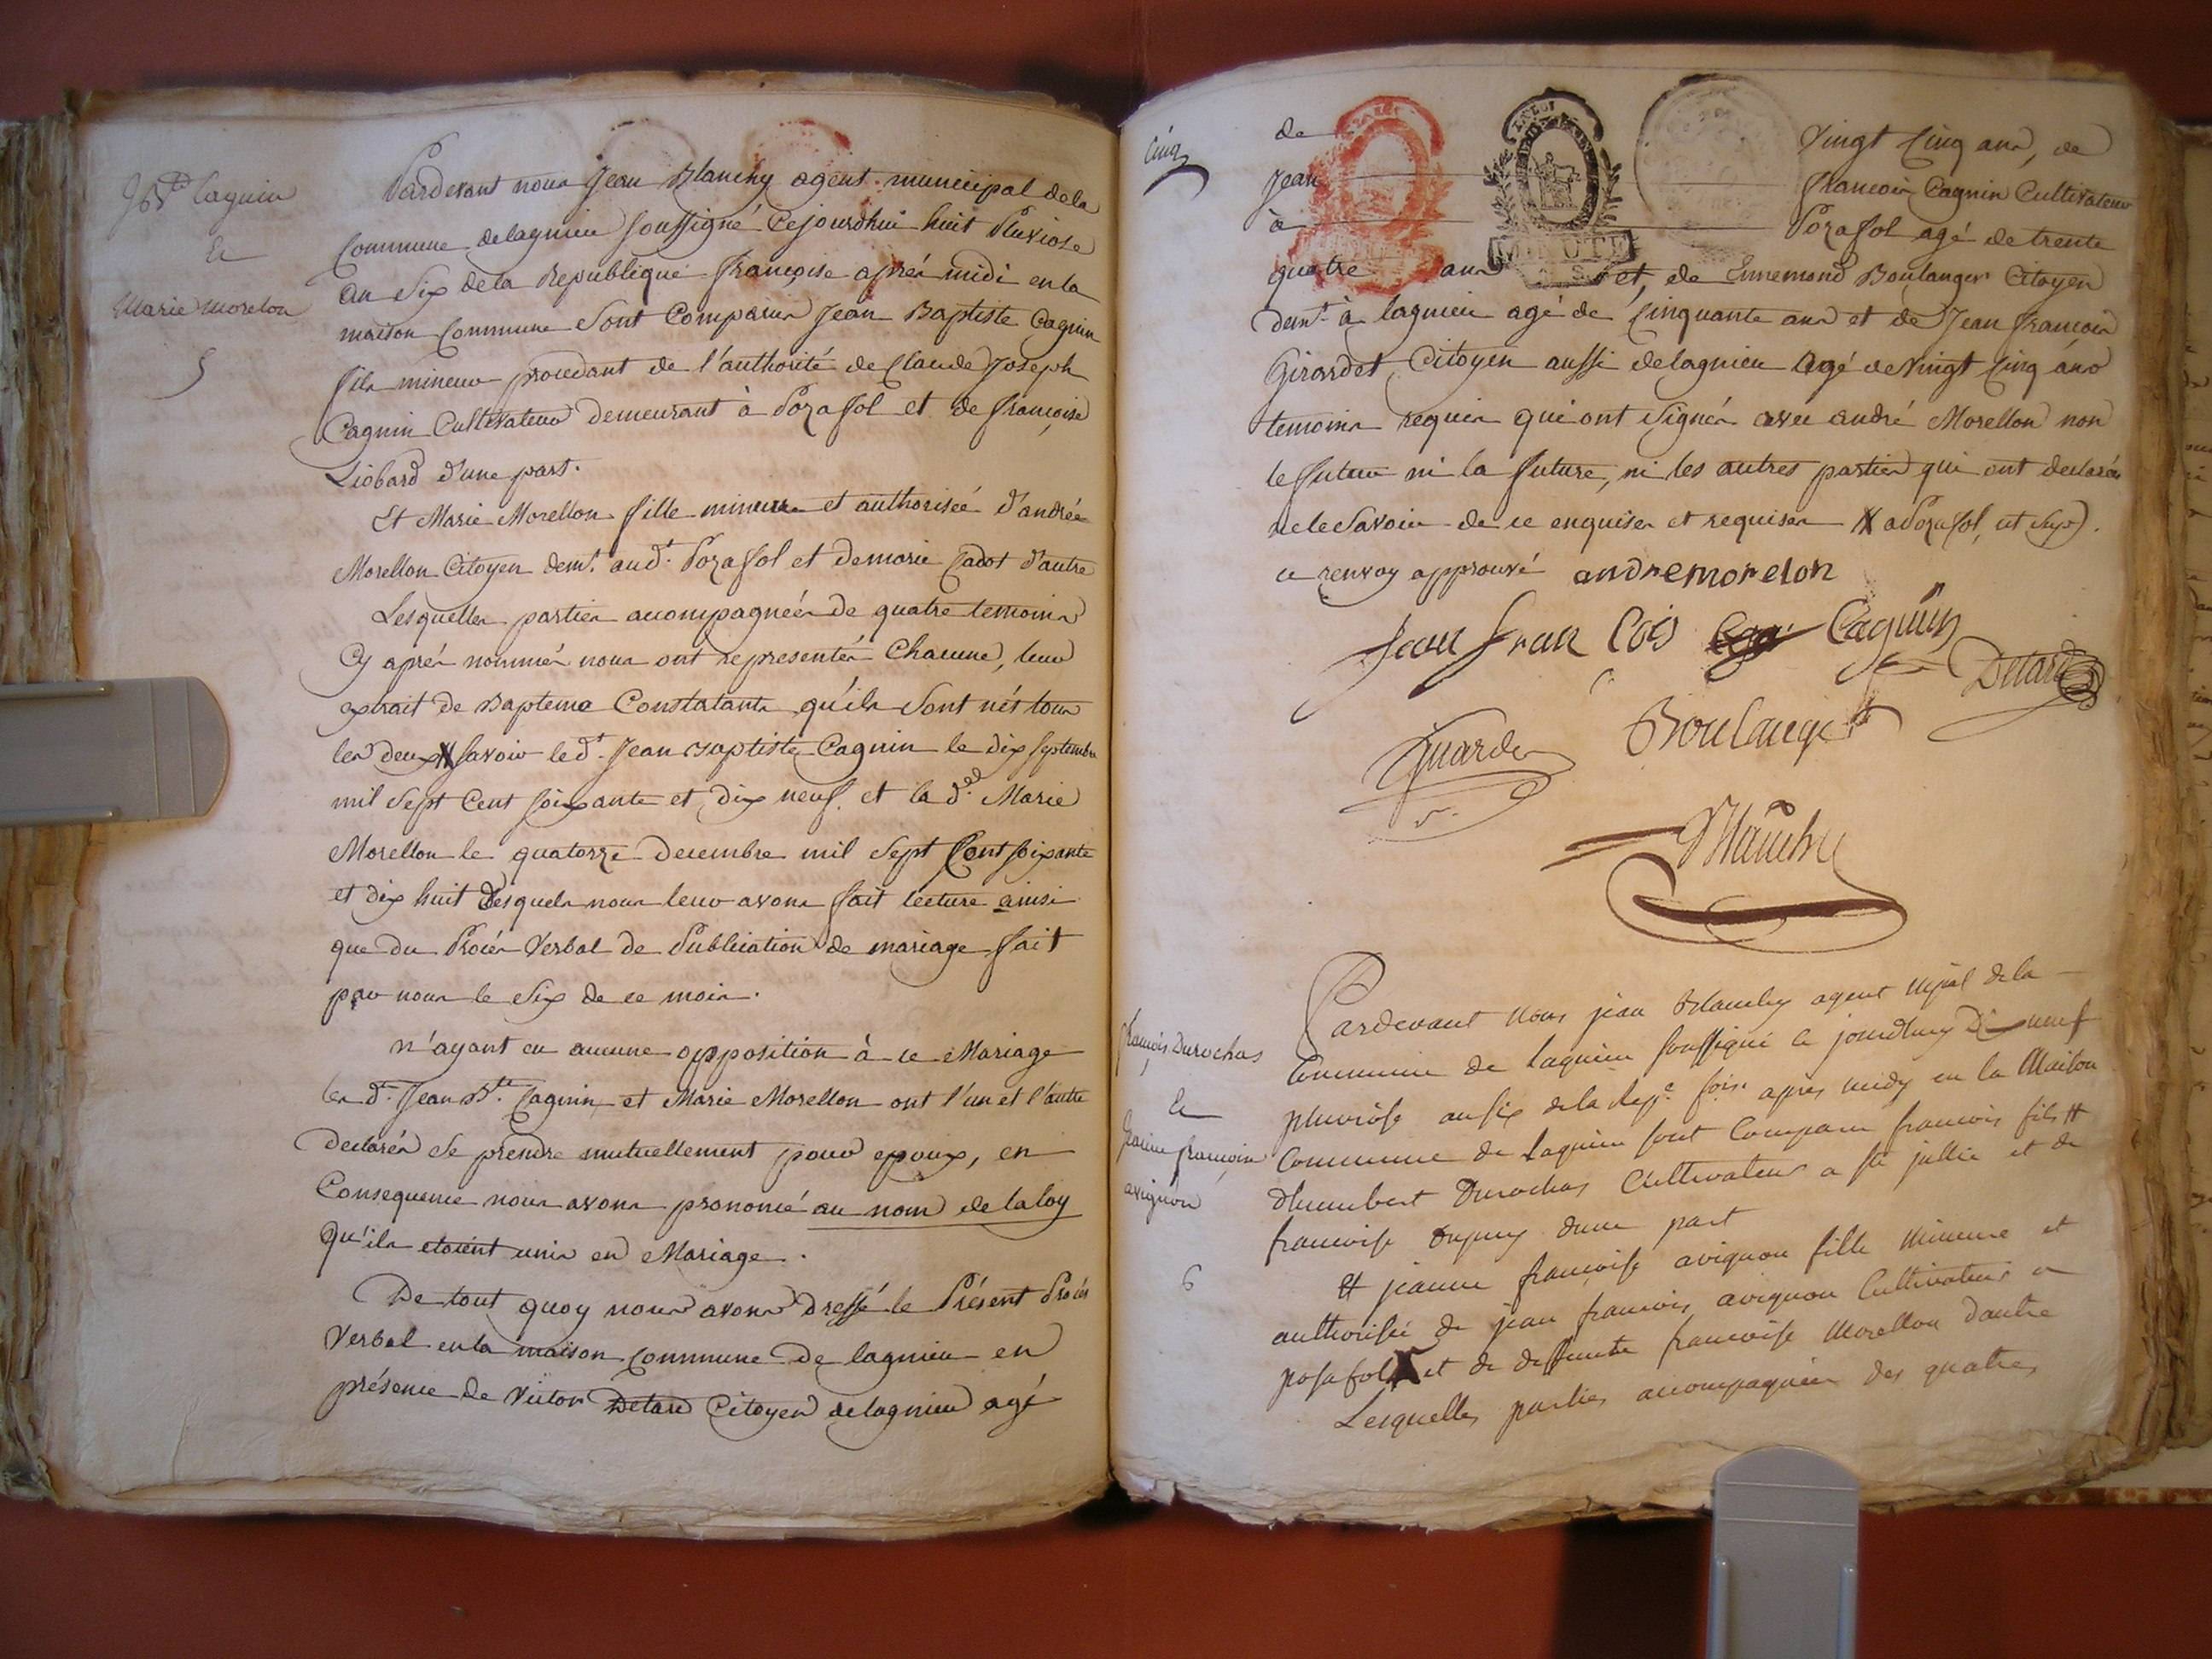 J B.te Cagnin
Et
Marie Morelon
5
Pardevant nous Jean Blanchy agent municipal de la
Commune de lagnieu soussigné Cejourdhui huit Pluviose
an Six de la Republique françoise aprés midi en la
maison Commune Sont Comparus Jean Baptiste Cagnin
fils mineur procedant de l'authorité de Claude Joseph
Cagnin Cultivateur demeurant à Posafol et de françoise
Liobard d'une part.
Et Marie Morellon fille mineure et authorisée d'andrée
Morellon Citoyen dem.t aud.t Posafol et de marie Cadot d'autre
Lesquelles parties accompagnées de quatre temoins
Cy aprés nommés nous ont representés Chacune, leur
extrait de Bapteme Constatants qu'ils Sont nés tous
les deux savoir led.t Jean Baptiste Cagnin le dix Septembre
mil Sept Cent soixante et dix neuf. et la d. Marie
Morellon le quatorze decembre mil Sept Cent soixante
et dix huit desquels nous leur avons fait lecture ainsi
que du Procés Verbal de Publication de mariage fait
par nous le Six de ce mois.
n'ayant eu aucune opposition à ce Mariage
les d.ts Jean B.te Cagnin et Marie Morellon ont l'un et l'autre
declarés Se prendre mutuellement pour epoux, en
Consequence nous avons prononcé au nom de la loy
qu'ils etoient unis en Mariage.
De tout quoy nous avons dressé le Présent Procés
Verbal en la maison Commune De lagnieu en
présence de Victor Detard Citoyen de lagnieu agé
Cinq
de vingt Cinq ans, de
Jean francois Cagnin Cultivateur
à Posafol agé de trente
quatre ans et, de Ennemond Boulanger Citoyen
dem.t à lagnieu agé de Cinquante ans et de Jean françois
Girardet Citoyen aussi de lagnieu agé de vingt Cinq ans
temoins requis qui ont Signés avec andré Morellon non
le futur ni la future, ni les autres parties qui ont declarés
ne le Savoir de ce enquises et requises a Posafol,
ce renvoy approuvé andremorelon
Jean fran Cois Cagnin
Detard
Boulanger
Blanchy
françois Durochas
Et
Jeanne françoise
avignon
6
Pardevant nous jean Blanchy agent mpal de la
Commune de Lagnieu soussigné ce jourdhuy Dix neuf
pluviose an six de la Rep.e fse. apres midy en la Maison
Commune de Lagnieu sont Comparu francois fils
dhumbert Durochas Cultivateur a ste jullie et de
francoise Dupuy dune part
Et jeanne françoise avignon fille mineure et
authorisée de jean francois avignon Cultivateur a
posafol et de deffunte francoise Morellon dautre
Lesquelles parties accompagnées des quatres